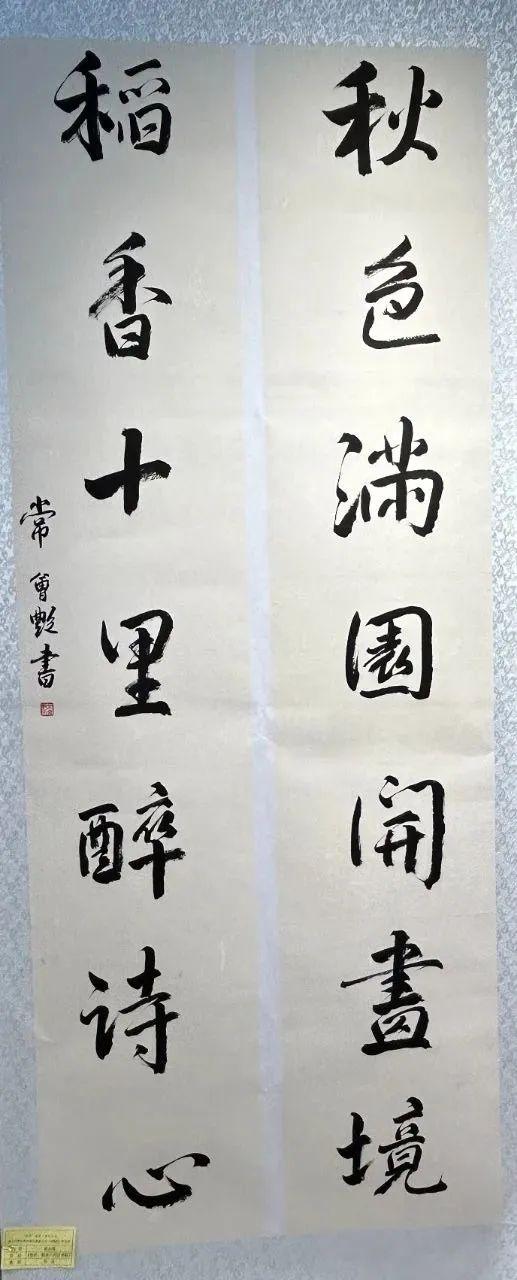 秋色满園開畫境
稻香十里醉詩心
常會艷書